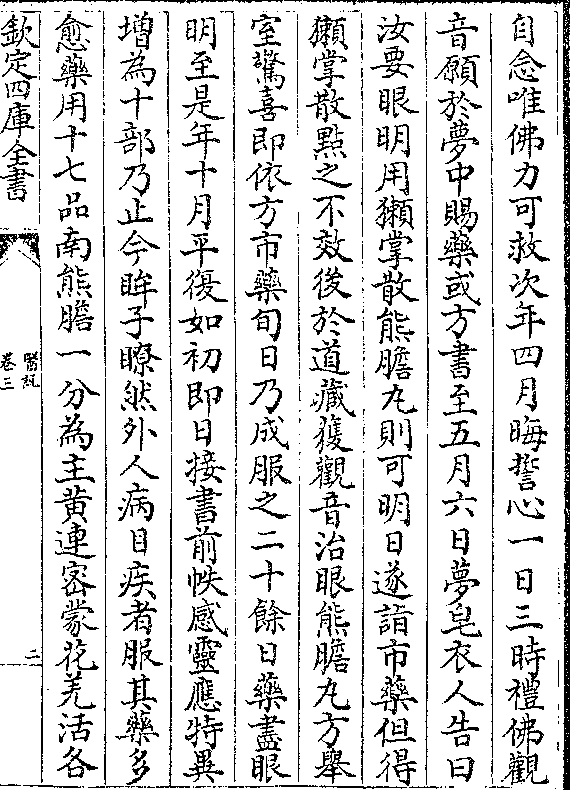 自念唯佛力可救次年四月晦誓心一日三時禮佛觀
音願於夢中賜藥或方書至五月六日夢皂衣人告曰
汝要眼明用獺掌散熊膽丸則可明日遂詣市藥但得
獺掌散點之不效後於道藏獲觀音治眼熊膽丸方舉
室驚喜即依方市藥旬日乃成服之二十餘日藥盡眼
明至是年十月平復如初即日接書前帙感靈應特異
増為十部乃止今眸子瞭然外人病目疾者服其藥多
愈藥用十七品南熊膽一分為主黄連宻蒙花羌活各
欽定四庫全書
醫説
卷三
二